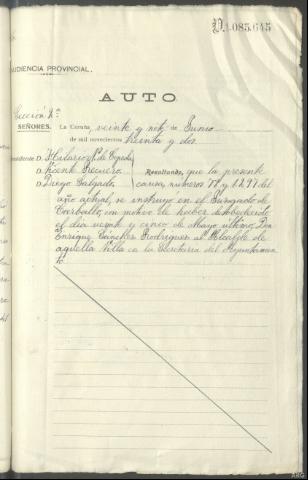 1.085.645
AUDIENCIA PROVINCIAL.
AUTO
Sección
SEÑORES. La Coruña, veinte y siete de Junio
de mil novecientos treinta y dos
Presidente D. Hilario N. de Cepeda
D. Vicente Pecuero. Resultando, que la presente
D. Diego Salgado causa, números 77 y 1891 del
año actual, se instruyó en el Juzgado de
Carballo, con motivo de haber desobedecido
el día veinte y cinco de Mayo último, Don
Enrique Rodríguez al Alcalde de
aquella Villa en la Secretaría del Ayuntamien
to
ARG